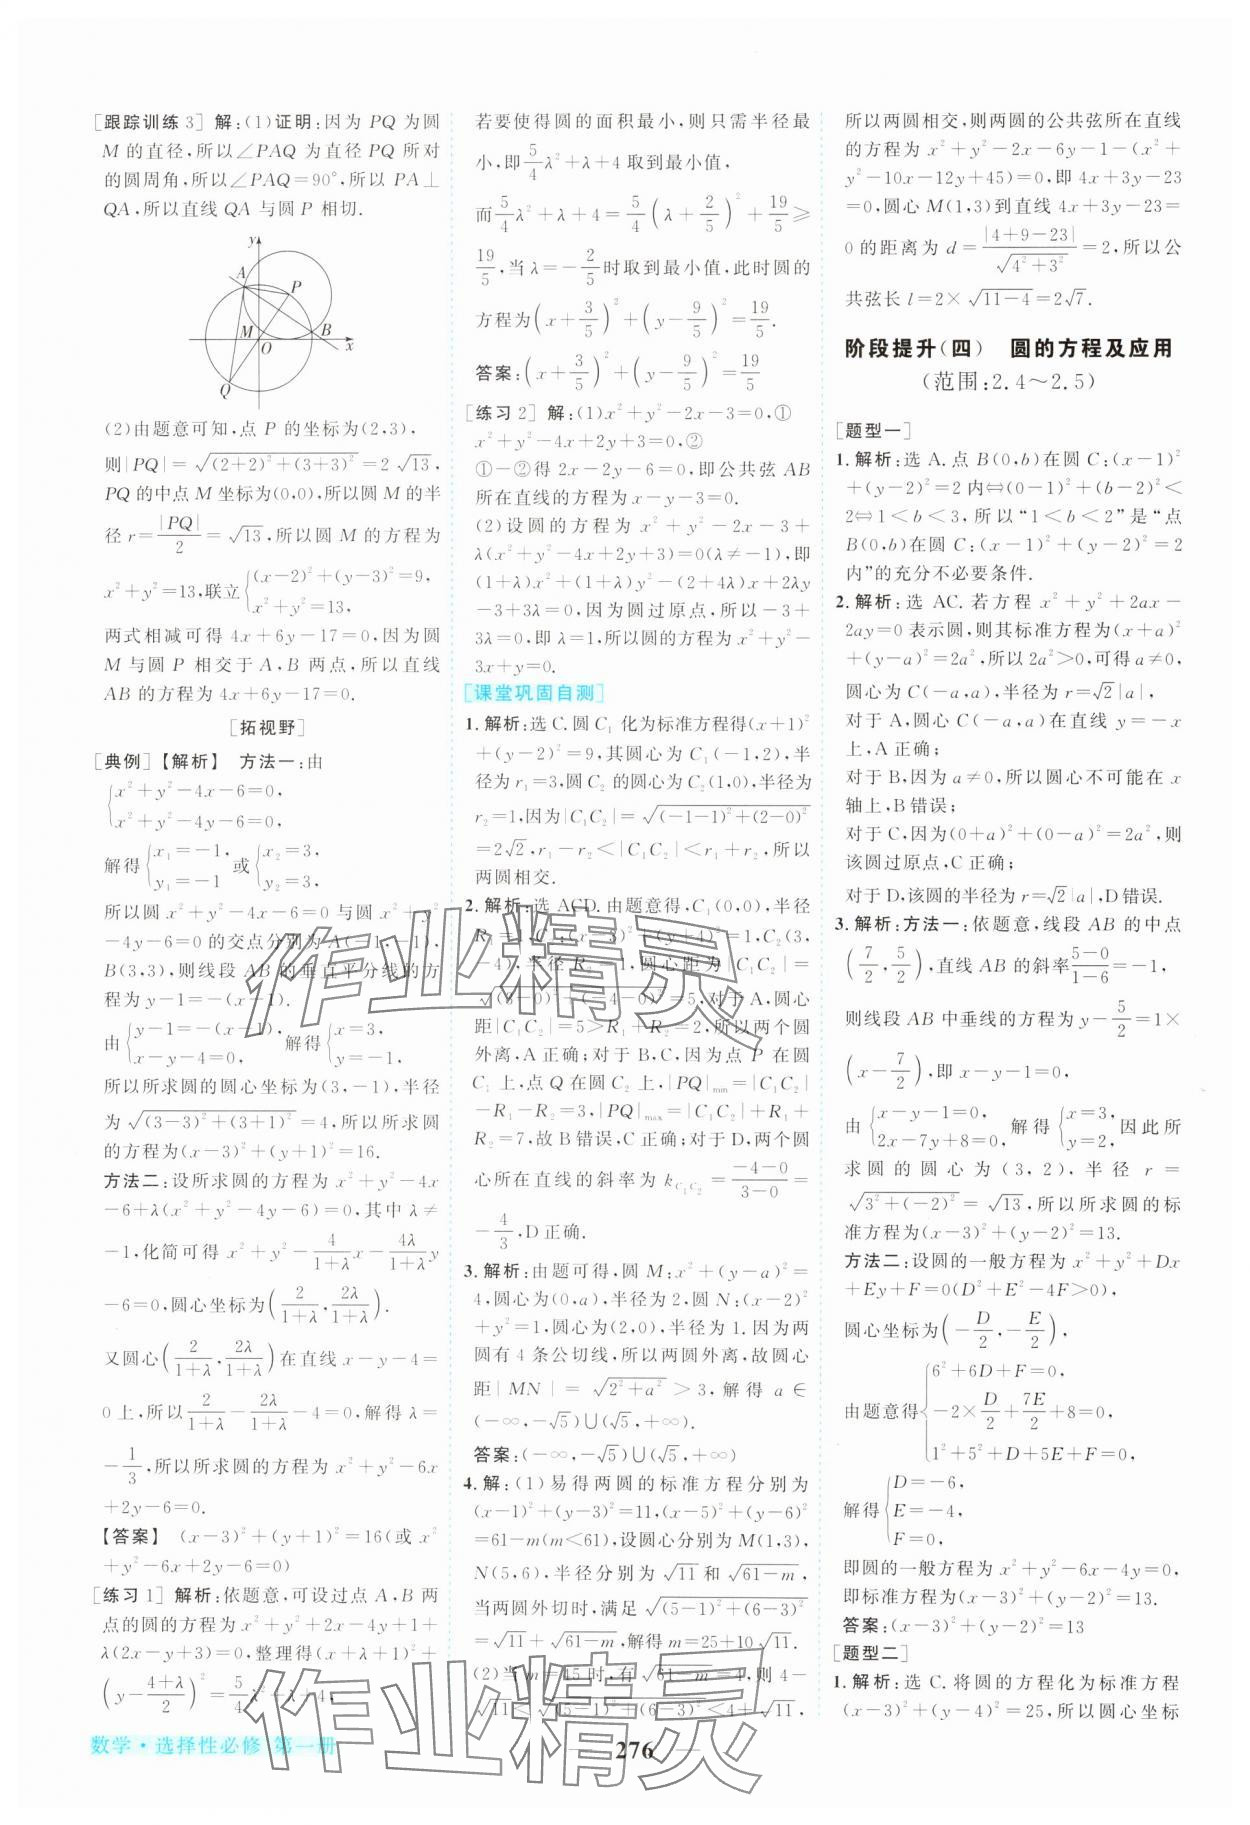 [跟踪训练3] 解:(1)证明:因为 PQ 为圆
M 的直径,所以∠PAQ 为直径 PQ 所对
的圆周角,所以∠PAQ=90°,所以 PA⊥
QA,所以直线 QA 与圆 P 相切.
y
A
P
M
O
B
x
Q
(2)由题意可知,点 P 的坐标为(2,3),
则|PQ|=√((2+2)²+(3+3)²)=2√13,
PQ 的中点 M 坐标为(0,0),所以圆 M 的半
径 r=|PQ|/2=√13,所以圆 M 的方程为
x²+y²=13,联立{(x-2)²+(y-3)²=9, x²+y²=13,
两式相减可得 4x+6y-17=0,因为圆
M 与圆 P 相交于 A,B 两点,所以直线
AB 的方程为 4x+6y-17=0.
[拓视野]
[典例]【解析】 方法一:由
{x²+y²-4x-6=0,
x²+y²-4y-6=0,
解得{x₁=-1, y₁=-1 或{x₂=3, y₂=3,
所以圆 x²+y²-4x-6=0 与圆 x²+y²
-4y-6=0 的交点分别为 A(-1,-1),
B(3,3),则线段 AB 的垂直平分线的方
程为 y-1=-(x-1).
由{y-1=-(x-1), x-y-4=0, 解得{x=3, y=-1,
所以所求圆的圆心坐标为(3,-1),半径
为√((3-3)²+(3+1)²)=4,所以所求圆
的方程为(x-3)²+(y+1)²=16.
方法二:设所求圆的方程为 x²+y²-4x
-6+λ(x²+y²-4y-6)=0,其中 λ≠
-1,化简可得 x²+y²-4/(1+λ)x-4λ/(1+λ)y
-6=0,圆心坐标为(2/(1+λ),2λ/(1+λ)).
又圆心(2/(1+λ),2λ/(1+λ))在直线 x-y-4=
0 上,所以2/(1+λ)-2λ/(1+λ)-4=0,解得 λ=
-1/3,所以所求圆的方程为 x²+y²-6x
+2y-6=0.
【答案】 (x-3)²+(y+1)²=16(或 x²
+y²-6x+2y-6=0)
[练习1] 解析:依题意,可设过点 A,B 两
点的圆的方程为 x²+y²+2x-4y+1+
λ(2x-y+3)=0,整理得(x+1+λ)²+
(y-(4+λ)/2)²=5/4λ²+λ+4,
若要使得圆的面积最小,则只需半径最
小,即5/4λ²+λ+4 取到最小值,
而5/4λ²+λ+4=5/4(λ+2/5)²+19/5≥
19/5,当 λ=-2/5时取到最小值,此时圆的
方程为(x+3/5)²+(y-9/5)²=19/5.
答案:(x+3/5)²+(y-9/5)²=19/5
[练习2] 解:(1)x²+y²-2x-3=0,①
x²+y²-4x+2y+3=0,②
①-②得 2x-2y-6=0,即公共弦 AB
所在直线的方程为 x-y-3=0.
(2)设圆的方程为 x²+y²-2x-3+
λ(x²+y²-4x+2y+3)=0(λ≠-1),即
(1+λ)x²+(1+λ)y²-(2+4λ)x+2λy
-3+3λ=0,因为圆过原点,所以-3+
3λ=0,即 λ=1,所以圆的方程为 x²+y²-
3x+y=0.
[课堂巩固自测]
1.解析:选 C.圆 C₁ 化为标准方程得(x+1)²
+(y-2)²=9,其圆心为 C₁(-1,2),半
径为 r₁=3,圆 C₂ 的圆心为 C₂(1,0),半径为
r₂=1,因为|C₁C₂|=√((-1-1)²+(2-0)²)
=2√2,r₁-r₂<|C₁C₂|<r₁+r₂,所以
两圆相交.
2.解析:选 ACD.由题意得,C₁(0,0),半径
R₁=1,C₂:(x-3)²+(y+4)²=1,C₂(3,
-4),半径 R₂=1,圆心距为|C₁C₂|=
√((3-0)²+(-4-0)²)=5,对于 A,圆心
距|C₁C₂|=5>R₁+R₂=2,所以两个圆
外离,A 正确;对于 B,C,因为点 P 在圆
C₁ 上,点 Q 在圆 C₂ 上,|PQ|min=|C₁C₂|
-R₁-R₂=3,|PQ|max=|C₁C₂|+R₁+
R₂=7,故 B 错误,C 正确;对于 D,两个圆
心所在直线的斜率为 k_C₁C₂=(-4-0)/(3-0)=
-4/3,D 正确.
3.解析:由题可得,圆 M:x²+(y-a)²=
4,圆心为(0,a),半径为 2,圆 N:(x-2)²
+y²=1,圆心为(2,0),半径为 1.因为两
圆有 4 条公切线,所以两圆外离,故圆心
距|MN|=√(2²+a²)>3,解得 a∈
(-∞,-√5)∪(√5,+∞).
答案:(-∞,-√5)∪(√5,+∞)
4.解:(1)易得两圆的标准方程分别为
(x-1)²+(y-3)²=11,(x-5)²+(y-6)²
=61-m(m<61),设圆心分别为 M(1,3),
N(5,6),半径分别为√11和√(61-m),
当两圆外切时,满足√((5-1)²+(6-3)²)
=√11+√(61-m),解得 m=25+10√11.
(2)当 m=45 时,有√(61-m)=4,则 4-
√11<√((5-1)²+(6-3)²)<4+√11,
所以两圆相交,则两圆的公共弦所在直线
的方程为 x²+y²-2x-6y-1-(x²+
y²-10x-12y+45)=0,即 4x+3y-23
=0,圆心 M(1,3)到直线 4x+3y-23=
0 的距离为 d=|4+9-23|/√(4²+3²)=2,所以公
共弦长 l=2×√(11-4)=2√7.
阶段提升(四) 圆的方程及应用
(范围:2.4～2.5)
[题型一]
1.解析:选 A.点 B(0,b)在圆 C:(x-1)²
+(y-2)²=2 内⇔(0-1)²+(b-2)²<
2⇔1<b<3,所以“1<b<2”是“点
B(0,b)在圆 C:(x-1)²+(y-2)²=2
内”的充分不必要条件.
2.解析:选 AC.若方程 x²+y²+2ax-
2ay=0 表示圆,则其标准方程为(x+a)²
+(y-a)²=2a²,所以 2a²>0,可得 a≠0,
圆心为 C(-a,a),半径为 r=√2|a|,
对于 A,圆心 C(-a,a)在直线 y=-x
上,A 正确;
对于 B,因为 a≠0,所以圆心不可能在 x
轴上,B 错误;
对于 C,因为(0+a)²+(0-a)²=2a²,则
该圆过原点,C 正确;
对于 D,该圆的半径为 r=√2|a|,D 错误.
3.解析:方法一:依题意,线段 AB 的中点
(7/2,5/2),直线 AB 的斜率(5-0)/(1-6)=-1,
则线段 AB 中垂线的方程为 y-5/2=1×
(x-7/2),即 x-y-1=0,
由{x-y-1=0, 2x-7y+8=0, 解得{x=3, y=2, 因此所
求圆的圆心为(3,2),半径 r=
√(3²+(-2)²)=√13,所以所求圆的标
准方程为(x-3)²+(y-2)²=13.
方法二:设圆的一般方程为 x²+y²+Dx
+Ey+F=0(D²+E²-4F>0),
圆心坐标为(-D/2,-E/2),
由题意得{6²+6D+F=0,
-2×D/2+7E/2+8=0,
1²+5²+D+5E+F=0,
解得{D=-6,
E=-4,
F=0,
即圆的一般方程为 x²+y²-6x-4y=0,
即标准方程为(x-3)²+(y-2)²=13.
答案:(x-3)²+(y-2)²=13
[题型二]
1.解析:选 C.将圆的方程化为标准方程
(x-3)²+(y-4)²=25,所以圆心坐标
数学·选择性必修 第一册
276
作业精灵
作业精灵